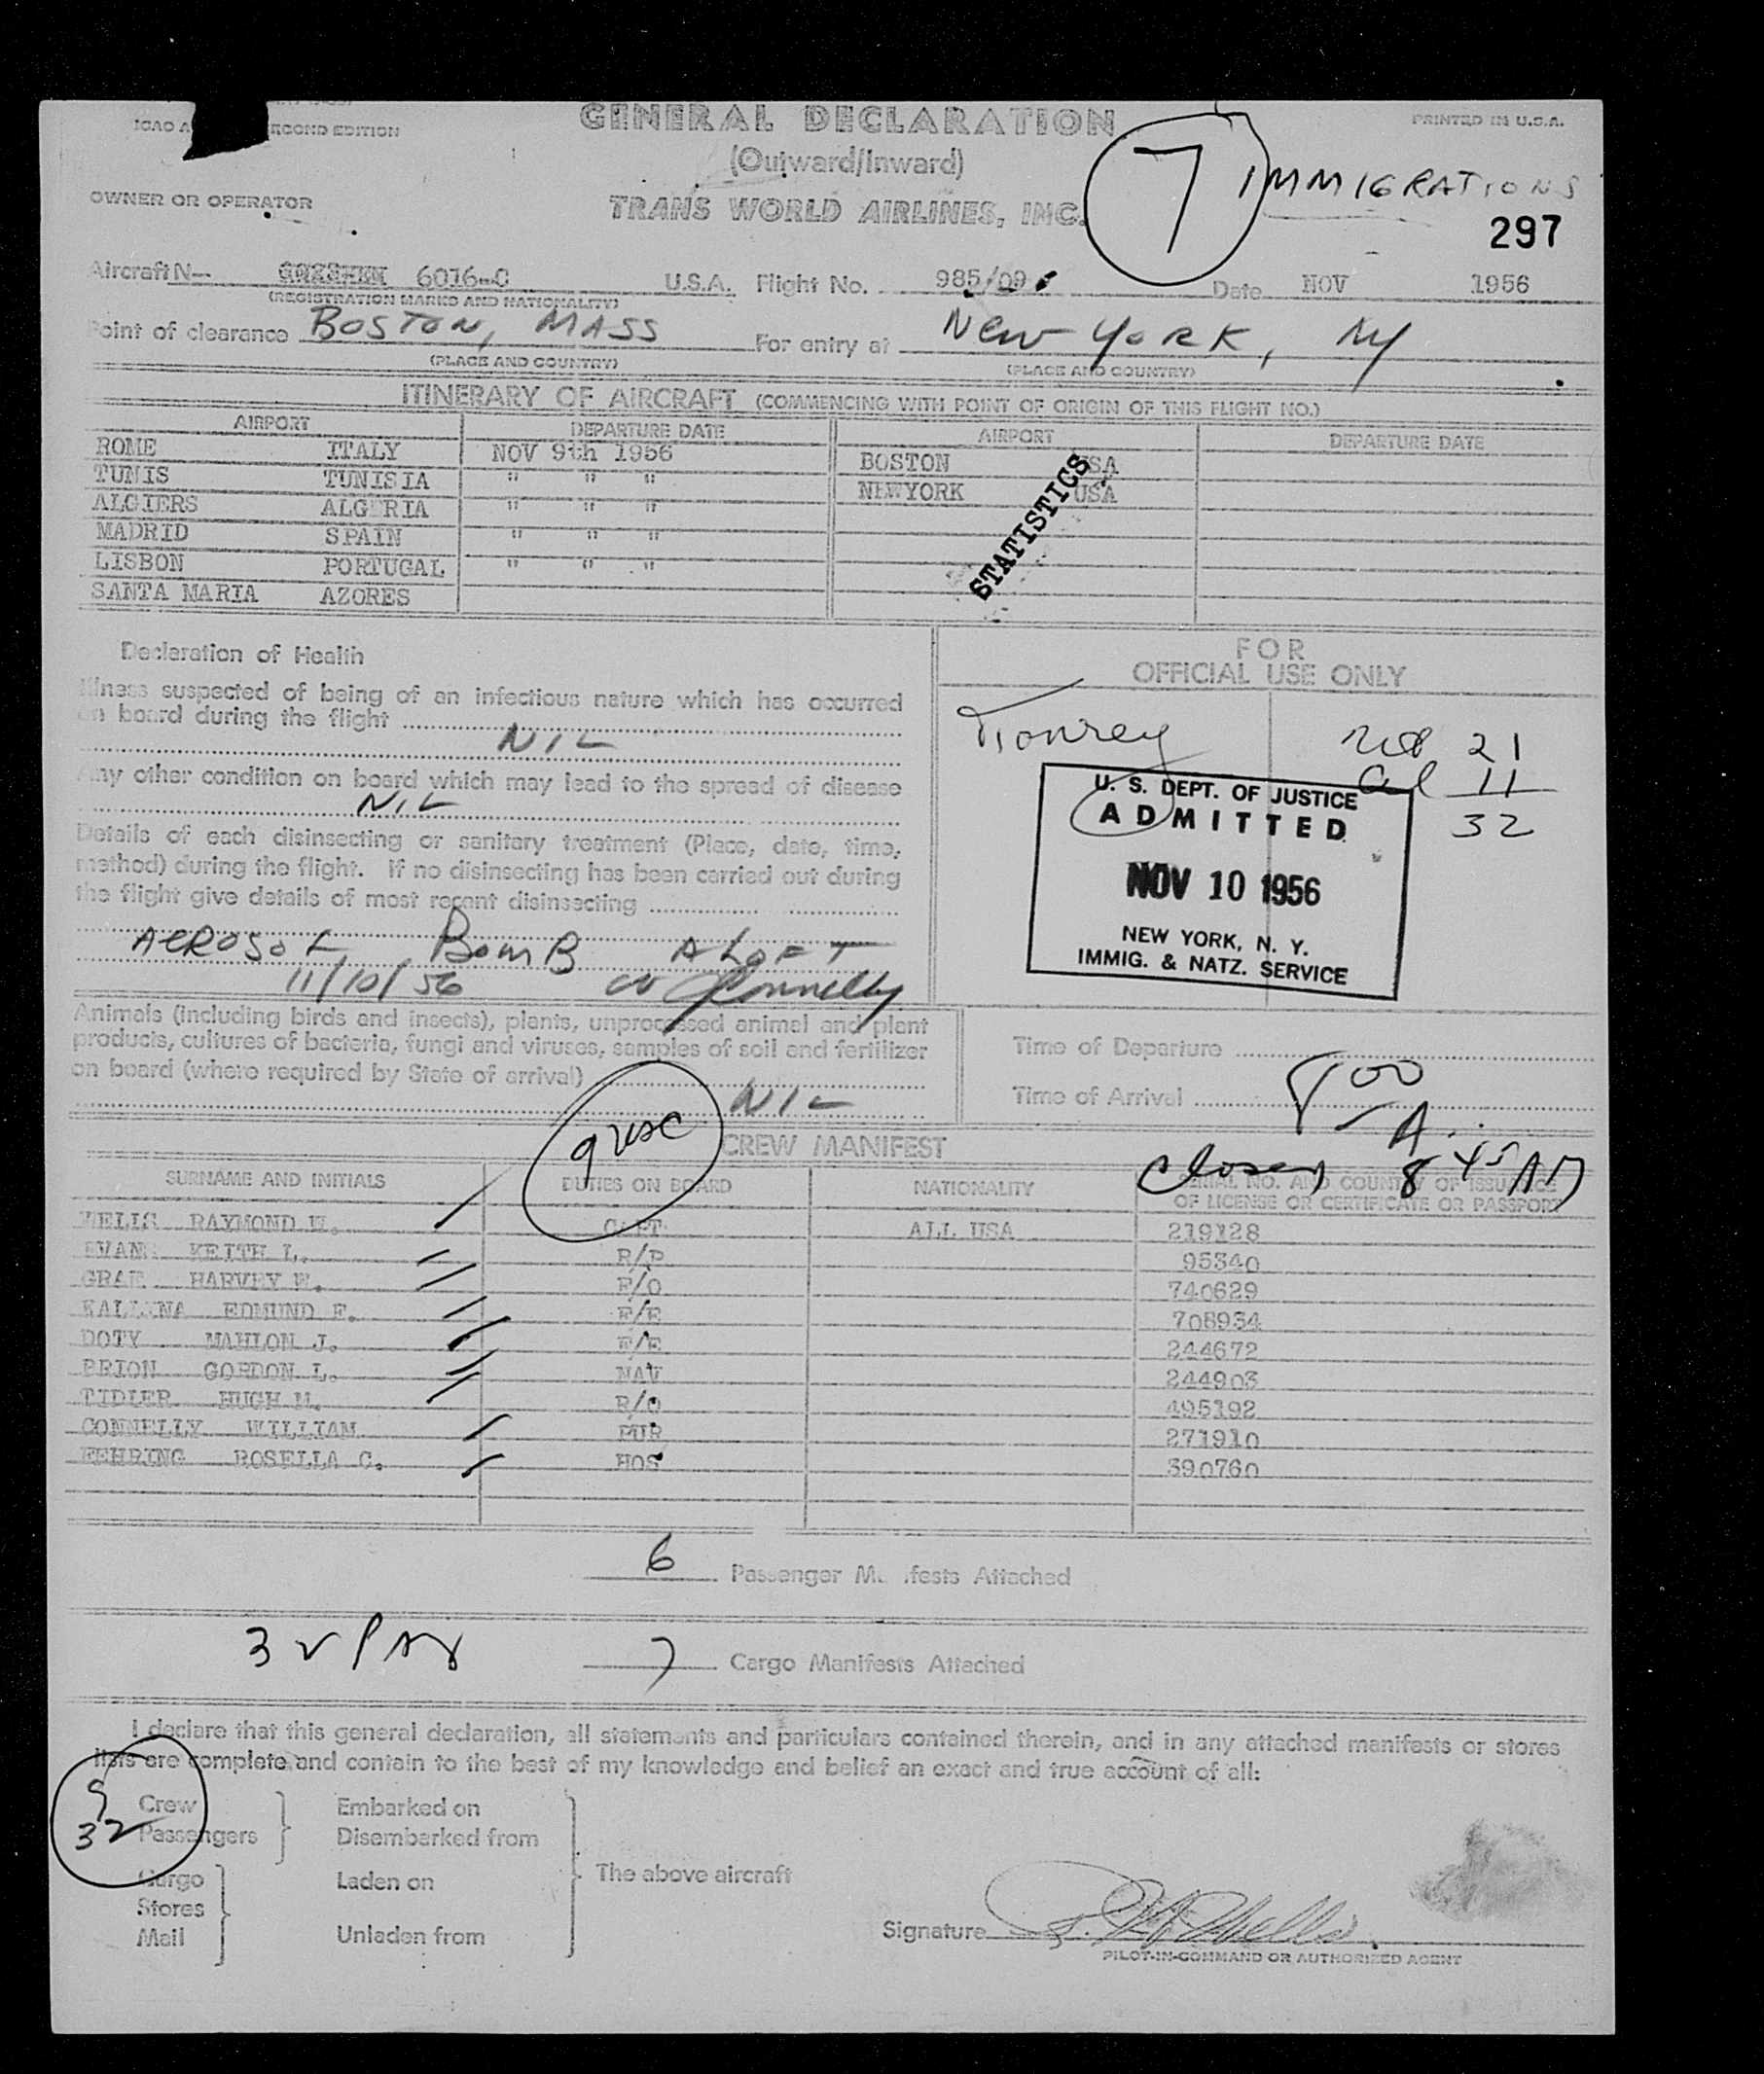 ICAO A RCOND EDITION
GENERAL DECLARATION
PRINTED IN U.S.A.
(Outward/Inward)
7
IMMIGRATIONS
OWNER OR OPERATOR
TRANS WORLD AIRLINES, INC.
297
Aircraft N— 6016-C U.S.A. Flight No. 985/09 Date NOV 1956
(REGISTRATION MARKS AND NATIONALITY)
Point of clearance BOSTON, MASS For entry at New York, NY
(PLACE AND COUNTRY) (PLACE AND COUNTRY)
ITINERARY OF AIRCRAFT (COMMENCING WITH POINT OF ORIGIN OF THIS FLIGHT NO.)
AIRPORT DEPARTURE DATE AIRPORT DEPARTURE DATE
ROME ITALY NOV 9th 1956 BOSTON USA
TUNIS TUNISIA " " " NEWYORK USA
ALGIERS ALGERIA " " "
MADRID SPAIN " " "
LISBON PORTUGAL " " "
SANTA MARIA AZORES
STATISTICS
Declaration of Health
Illness suspected of being of an infectious nature which has occurred
on board during the flight
NIL
Any other condition on board which may lead to the spread of disease
NIL
Details of each disinsecting or sanitary treatment (Place, date, time,
method) during the flight. If no disinsecting has been carried out during
the flight give details of most recent disinsecting
AEROSOL BOMB ALOFT
11/10/56 W Connelly
FOR
OFFICIAL USE ONLY
21
11
32
U. S. DEPT. OF JUSTICE
ADMITTED
NOV 10 1956
NEW YORK, N. Y.
IMMIG. & NATZ. SERVICE
Animals (including birds and insects), plants, unprocessed animal and plant
products, cultures of bacteria, fungi and viruses, samples of soil and fertilizer
on board (where required by State of arrival)
NIL
Time of Departure
Time of Arrival 800 A
9 usc
CREW MANIFEST
Closed 8 45 AM
SURNAME AND INITIALS DUTIES ON BOARD NATIONALITY SERIAL NO. AND COUNTRY OF ISSUANCE
OF LICENSE OR CERTIFICATE OR PASSPORT
WELLS RAYMOND W. CAPT ALL USA 219128
EVANS KEITH L. R/P 95340
GRAE HARVEY W. F/O 740629
EDMUND F. F/E 708934
DOTY MAHLON J. F/E 244672
BRION GORDON L. NAV 244903
TIDLER HUGH M. R/O 495192
CONNELLY WILLIAM PUR 271910
FEHRING ROSELLA C. HOS 390760
6 Passenger M ifests Attached
32 PAX
7 Cargo Manifests Attached
I declare that this general declaration, all statements and particulars contained therein, and in any attached manifests or stores
lists are complete and contain to the best of my knowledge and belief an exact and true account of all:
9 Crew Embarked on
32 Passengers Disembarked from
Cargo Laden on The above aircraft
Stores
Mail Unladen from
Signature R. W Wells
PILOT-IN-COMMAND OR AUTHORIZED AGENT